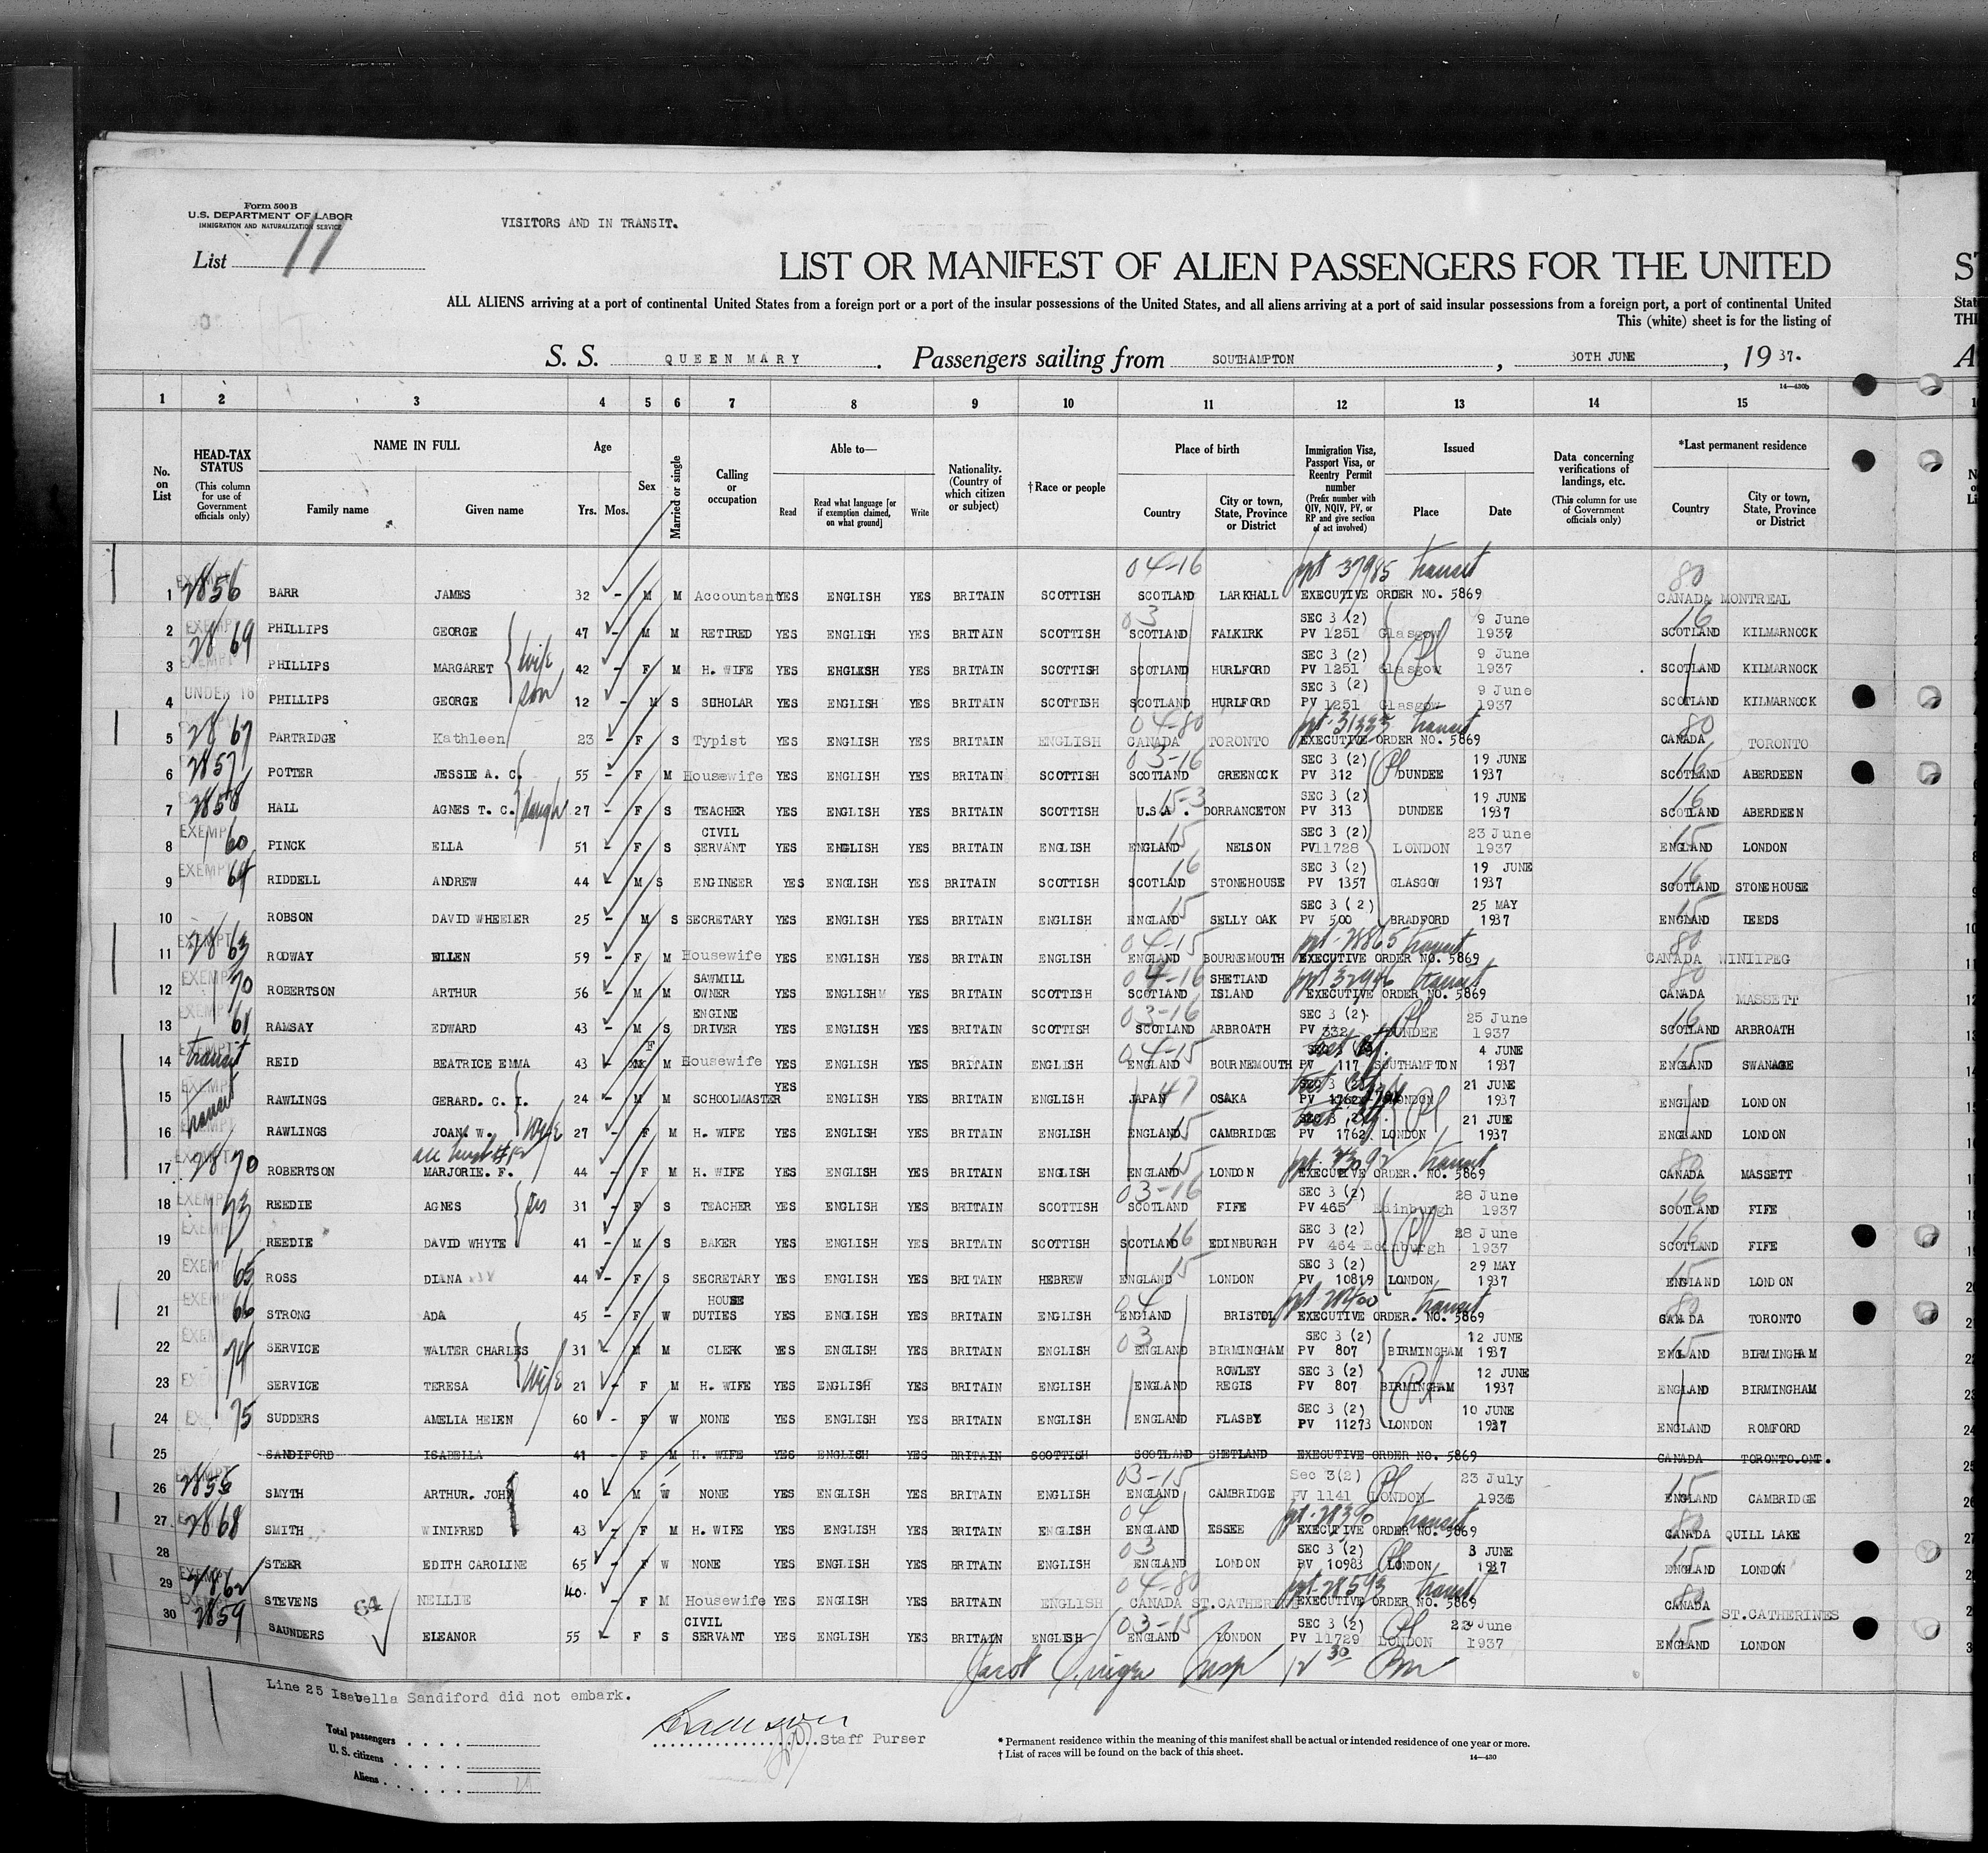 Form 500 B
U.S. DEPARTMENT OF LABOR
IMMIGRATION AND NATURALIZATION SERVICE
VISITORS AND IN TRANSIT.
List 11
LIST OR MANIFEST OF ALIEN PASSENGERS FOR THE UNITED
ALL ALIENS arriving at a port of continental United States from a foreign port or a port of the insular possessions of the United States, and all aliens arriving at a port of said insular possessions from a foreign port, a port of continental United
This (white) sheet is for the listing of
S. S. QUEEN MARY. Passengers sailing from SOUTHAMPTON, 30TH JUNE, 1937.
14—430b
1 2 3 4 5 6 7 8 9 10 11 12 13 14 15
No. on List
HEAD-TAX STATUS (This column for use of Government officials only)
NAME IN FULL
Family name Given name
Age
Yrs. Mos.
Sex
Married or single
Calling or occupation
Able to—
Read
Read what language [or if exemption claimed, on what ground]
Write
Nationality. (Country of which citizen or subject)
†Race or people
Place of birth
Country
City or town, State, Province or District
Immigration Visa, Passport Visa, or Reentry Permit number (Prefix number with QIV, NQIV, PV, or RP and give section of act involved)
Issued
Place Date
Data concerning verifications of landings, etc. (This column for use of Government officials only)
*Last permanent residence
Country
City or town, State, Province or District
04-16 ppt 37985 transit 80
1 2856 BARR JAMES 32 - M M Accountant YES ENGLISH YES BRITAIN SCOTTISH SCOTLAND LARKHALL EXECUTIVE ORDER NO. 5869 CANADA MONTREAL
03 SEC 3 (2) 9 June 16
2 2869 PHILLIPS GEORGE 47 - M M RETIRED YES ENGLISH YES BRITAIN SCOTTISH SCOTLAND FALKIRK PV 1251 Glasgow 1937 SCOTLAND KILMARNOCK
SEC 3 (2) 9 June
3 PHILLIPS MARGARET wife 42 - F M H. WIFE YES ENGLISH YES BRITAIN SCOTTISH SCOTLAND HURLFORD PV 1251 Glasgow 1937 SCOTLAND KILMARNOCK
UNDER 16 SEC 3 (2) 9 June
4 PHILLIPS GEORGE son 12 - M S SCHOLAR YES ENGLISH YES BRITAIN SCOTTISH SCOTLAND HURLFORD PV 1251 Glasgow 1937 SCOTLAND KILMARNOCK
04-80 transit 80
5 2867 PARTRIDGE Kathleen 23 - F S Typist YES ENGLISH YES BRITAIN ENGLISH CANADA TORONTO EXECUTIVE ORDER NO. 5869 CANADA TORONTO
03-16 SEC 3 (2) 19 JUNE 16
6 2857 POTTER JESSIE A. C. 55 - F M Housewife YES ENGLISH YES BRITAIN SCOTTISH SCOTLAND GREENOCK PV 312 DUNDEE 1937 SCOTLAND ABERDEEN
15-3 SEC 3 (2) 19 JUNE 16
7 2858 HALL AGNES T. C. daugh 27 - F S TEACHER YES ENGLISH YES BRITAIN SCOTTISH U.S.A. DORRANCETON PV 313 DUNDEE 1937 SCOTLAND ABERDEEN
EXEMPT CIVIL 15 SEC 3 (2) 23 June 15
8 60 PINCK ELLA 51 - F S SERVANT YES ENGLISH YES BRITAIN ENGLISH ENGLAND NELSON PV11728 LONDON 1937 ENGLAND LONDON
EXEMPT 16 SEC 3 (2) 19 JUNE 16
9 64 RIDDELL ANDREW 44 - M S ENGINEER YES ENGLISH YES BRITAIN SCOTTISH SCOTLAND STONEHOUSE PV 1357 GLASGOW 1937 SCOTLAND STONEHOUSE
15 SEC 3 (2) 25 MAY 15
10 ROBSON DAVID WHEELER 25 - M S SECRETARY YES ENGLISH YES BRITAIN ENGLISH ENGLAND SELLY OAK PV 500 BRADFORD 1937 ENGLAND LEEDS
EXEMPT 04-15 ppt 28865 transit 80
11 2863 RODWAY ELLEN 59 - F M Housewife YES ENGLISH YES BRITAIN ENGLISH ENGLAND BOURNEMOUTH EXECUTIVE ORDER NO. 5869 CANADA WINIIPEG
EXEMPT SAWMILL 04-16 SHETLAND ppt 32946 transit 80
12 70 ROBERTSON ARTHUR 56 - M M OWNER YES ENGLISH YES BRITAIN SCOTTISH SCOTLAND ISLAND EXECUTIVE ORDER NO. 5869 CANADA MASSETT
EXEMPT ENGINE 03-16 SEC 3 (2) 25 June 16
13 61 RAMSAY EDWARD 43 - M S DRIVER YES ENGLISH YES BRITAIN SCOTTISH SCOTLAND ARBROATH PV 332 DUNDEE 1937 SCOTLAND ARBROATH
F 04-15 4 JUNE 15
14 transit REID BEATRICE EMMA 43 - M Housewife YES ENGLISH YES BRITAIN ENGLISH ENGLAND BOURNEMOUTH PV 117 SOUTHAMPTON 1937 ENGLAND SWANAGE
YES 47 SEC 3 (2) 21 JUNE 15
15 transit RAWLINGS GERARD. C. I. 24 - M M SCHOOLMASTER ENGLISH YES BRITAIN ENGLISH JAPAN OSAKA PV 1762 LONDON 1937 ENGLAND LONDON
15 21 JUNE
16 RAWLINGS JOAN. W. wife 27 - F M H. WIFE YES ENGLISH YES BRITAIN ENGLISH ENGLAND CAMBRIDGE PV 1762 LONDON 1937 ENGLAND LONDON
15 transit 80
17 2870 ROBERTSON MARJORIE. F. 44 - F M H. WIFE YES ENGLISH YES BRITAIN ENGLISH ENGLAND LONDON EXECUTIVE ORDER. NO. 5869 CANADA MASSETT
EXEMPT 03-16 SEC 3 (2) 28 June 16
18 73 REEDIE AGNES 31 - F S TEACHER YES ENGLISH YES BRITAIN SCOTTISH SCOTLAND FIFE PV 465 Edinburgh 1937 SCOTLAND FIFE
16 SEC 3 (2) 28 June 16
19 REEDIE DAVID WHYTE 41 - M S BAKER YES ENGLISH YES BRITAIN SCOTTISH SCOTLAND EDINBURGH PV 464 Edinburgh 1937 SCOTLAND FIFE
15 SEC 3 (2) 29 MAY 15
20 65 ROSS DIANA 44 - F S SECRETARY YES ENGLISH YES BRITAIN HEBREW ENGLAND LONDON PV 10819 LONDON 1937 ENGLAND LONDON
HOUSE 04 transit 80
21 66 STRONG ADA 45 - F W DUTIES YES ENGLISH YES BRITAIN ENGLISH ENGLAND BRISTOL EXECUTIVE ORDER. NO. 5869 CANADA TORONTO
03 SEC 3 (2) 12 JUNE 15
22 74 SERVICE WALTER CHARLES 31 - M M CLERK YES ENGLISH YES BRITAIN ENGLISH ENGLAND BIRMINGHAM PV 807 BIRMINGHAM 1937 ENGLAND BIRMINGHAM
ROWLEY SEC 3 (2) 12 JUNE
23 SERVICE TERESA wife 21 - F M H. WIFE YES ENGLISH YES BRITAIN ENGLISH ENGLAND REGIS PV 807 BIRMINGHAM 1937 ENGLAND BIRMINGHAM
SEC 3 (2) 10 JUNE
24 75 SUDDERS AMELIA HELEN 60 - F W NONE YES ENGLISH YES BRITAIN ENGLISH ENGLAND FLASBY PV 11273 LONDON 1937 ENGLAND ROMFORD
25 SANDIFORD ISABELLA 41 - F M H. WIFE YES ENGLISH YES BRITAIN SCOTTISH SCOTLAND SHETLAND EXECUTIVE ORDER NO. 5869 CANADA TORONTO.ONT.
03-15 Sec 3(2) 23 July 15
26 SMYTH ARTHUR. JOHN 40 - M W NONE YES ENGLISH YES BRITAIN ENGLISH ENGLAND CAMBRIDGE PV 1141 LONDON 1936 ENGLAND CAMBRIDGE
04 ppt 28390 transit 80
27 2868 SMITH WINIFRED 43 - F M H. WIFE YES ENGLISH YES BRITAIN ENGLISH ENGLAND ESSEE EXECUTIVE ORDER NO. 5869 CANADA QUILL LAKE
03 SEC 3 (2) 3 JUNE 15
28 STEER EDITH CAROLINE 65 - F W NONE YES ENGLISH YES BRITAIN ENGLISH ENGLAND LONDON PV 10983 LONDON 1937 ENGLAND LONDON
04-80 ppt 28593 transit 80
29 2862 STEVENS NELLIE 40. - F M Housewife YES ENGLISH YES BRITAIN ENGLISH CANADA ST.CATHERINE EXECUTIVE ORDER NO. 5869 CANADA ST.CATHERINES
64 CIVIL 03-15 SEC 3 (2) June 15
30 2859 SAUNDERS ELEANOR 55 - F S SERVANT YES ENGLISH YES BRITAIN ENGLISH ENGLAND LONDON PV 11729 LONDON 1937 ENGLAND LONDON
Jacob Insp 12 30 Pm
Line 25 Isabella Sandiford did not embark.
Staff Purser
Total passengers
U. S. citizens
Aliens
* Permanent residence within the meaning of this manifest shall be actual or intended residence of one year or more.
† List of races will be found on the back of this sheet.
14—430